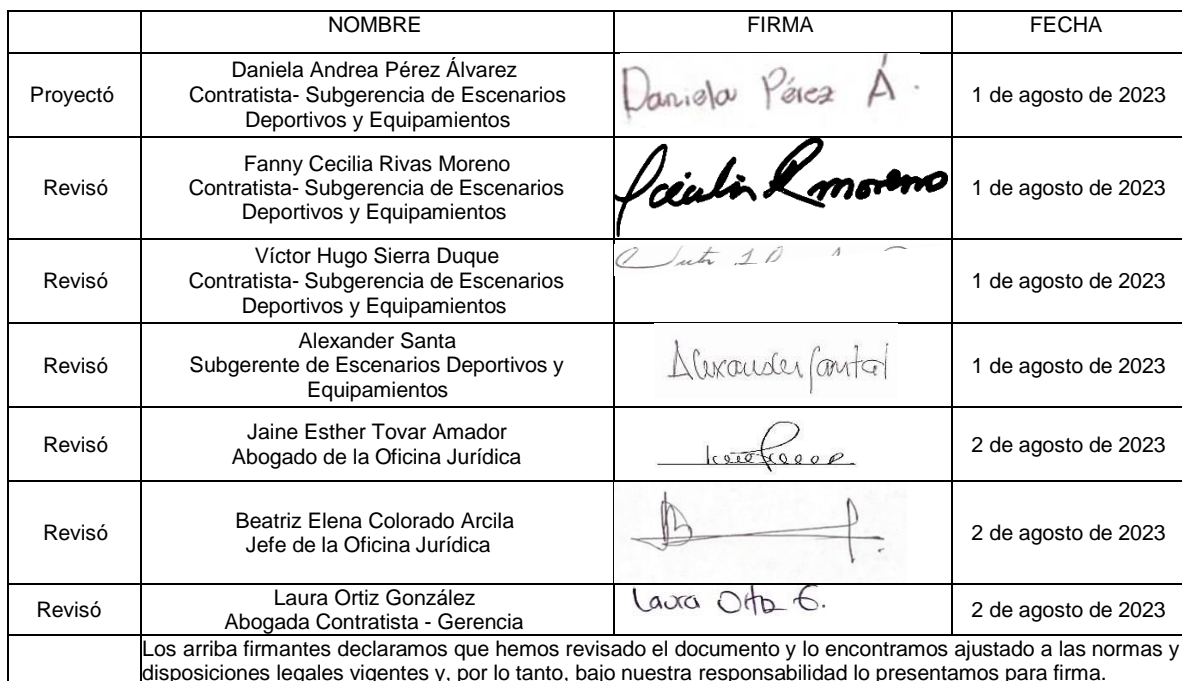 NOMBRE FIRMA FECHA
Proyectó
Daniela Andrea Pérez Álvarez
Contratista- Subgerencia de Escenarios
Deportivos y Equipamientos
Daniela Pérez Á.
1 de agosto de 2023
Revisó
Fanny Cecilia Rivas Moreno
Contratista- Subgerencia de Escenarios
Deportivos y Equipamientos
Cecilia R moreno
1 de agosto de 2023
Revisó
Víctor Hugo Sierra Duque
Contratista- Subgerencia de Escenarios
Deportivos y Equipamientos
1 de agosto de 2023
Revisó
Alexander Santa
Subgerente de Escenarios Deportivos y
Equipamientos
Alexander Santa
1 de agosto de 2023
Revisó
Jaine Esther Tovar Amador
Abogado de la Oficina Jurídica
2 de agosto de 2023
Revisó
Beatriz Elena Colorado Arcila
Jefe de la Oficina Jurídica
2 de agosto de 2023
Revisó
Laura Ortiz González
Abogada Contratista - Gerencia
Laura Ortiz G.
2 de agosto de 2023
Los arriba firmantes declaramos que hemos revisado el documento y lo encontramos ajustado a las normas y
disposiciones legales vigentes y, por lo tanto, bajo nuestra responsabilidad lo presentamos para firma.